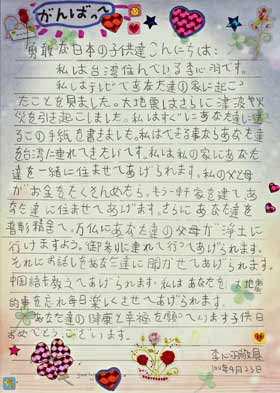 がんばっ〜
勇敢な日本の子供達こんにちは:
私は台湾住んでいる李心羽です。
私はテレビであなた達の家に起こっ
たことを見ました。大地震はさらに津波や火
災を引き起こしました。私はすぐにあなた達に送
るこの手紙も書きました。私はできる事ならあなた達
を台湾に連れてきたいです。私は私の家にあなた
達を一緒に住ませてあげられます。私の父母
がお金をたくさんめたら、もう一軒家を建てあ
なた達に住ませてあげます。さらにあなた達を
彰彰精舎で、万仏にあなた達の父母が浄土に
行けますよう。御参りに連れて行ってあげられます。
それにお話しをあなた達に聞かせてあげられます。
中国語も教えてあげられます。私はあなたを
的事を忘れ毎日楽しくさせてあげられます。
あなた達の健康と幸福を願っています子供日
おめでとうございます。
李心羽敬具
100年4月23日